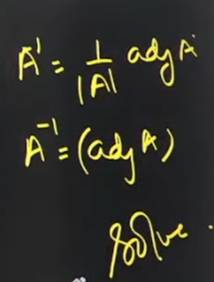 A' = 1/|A| adj A
A⁻¹ = (adj A)
solve.